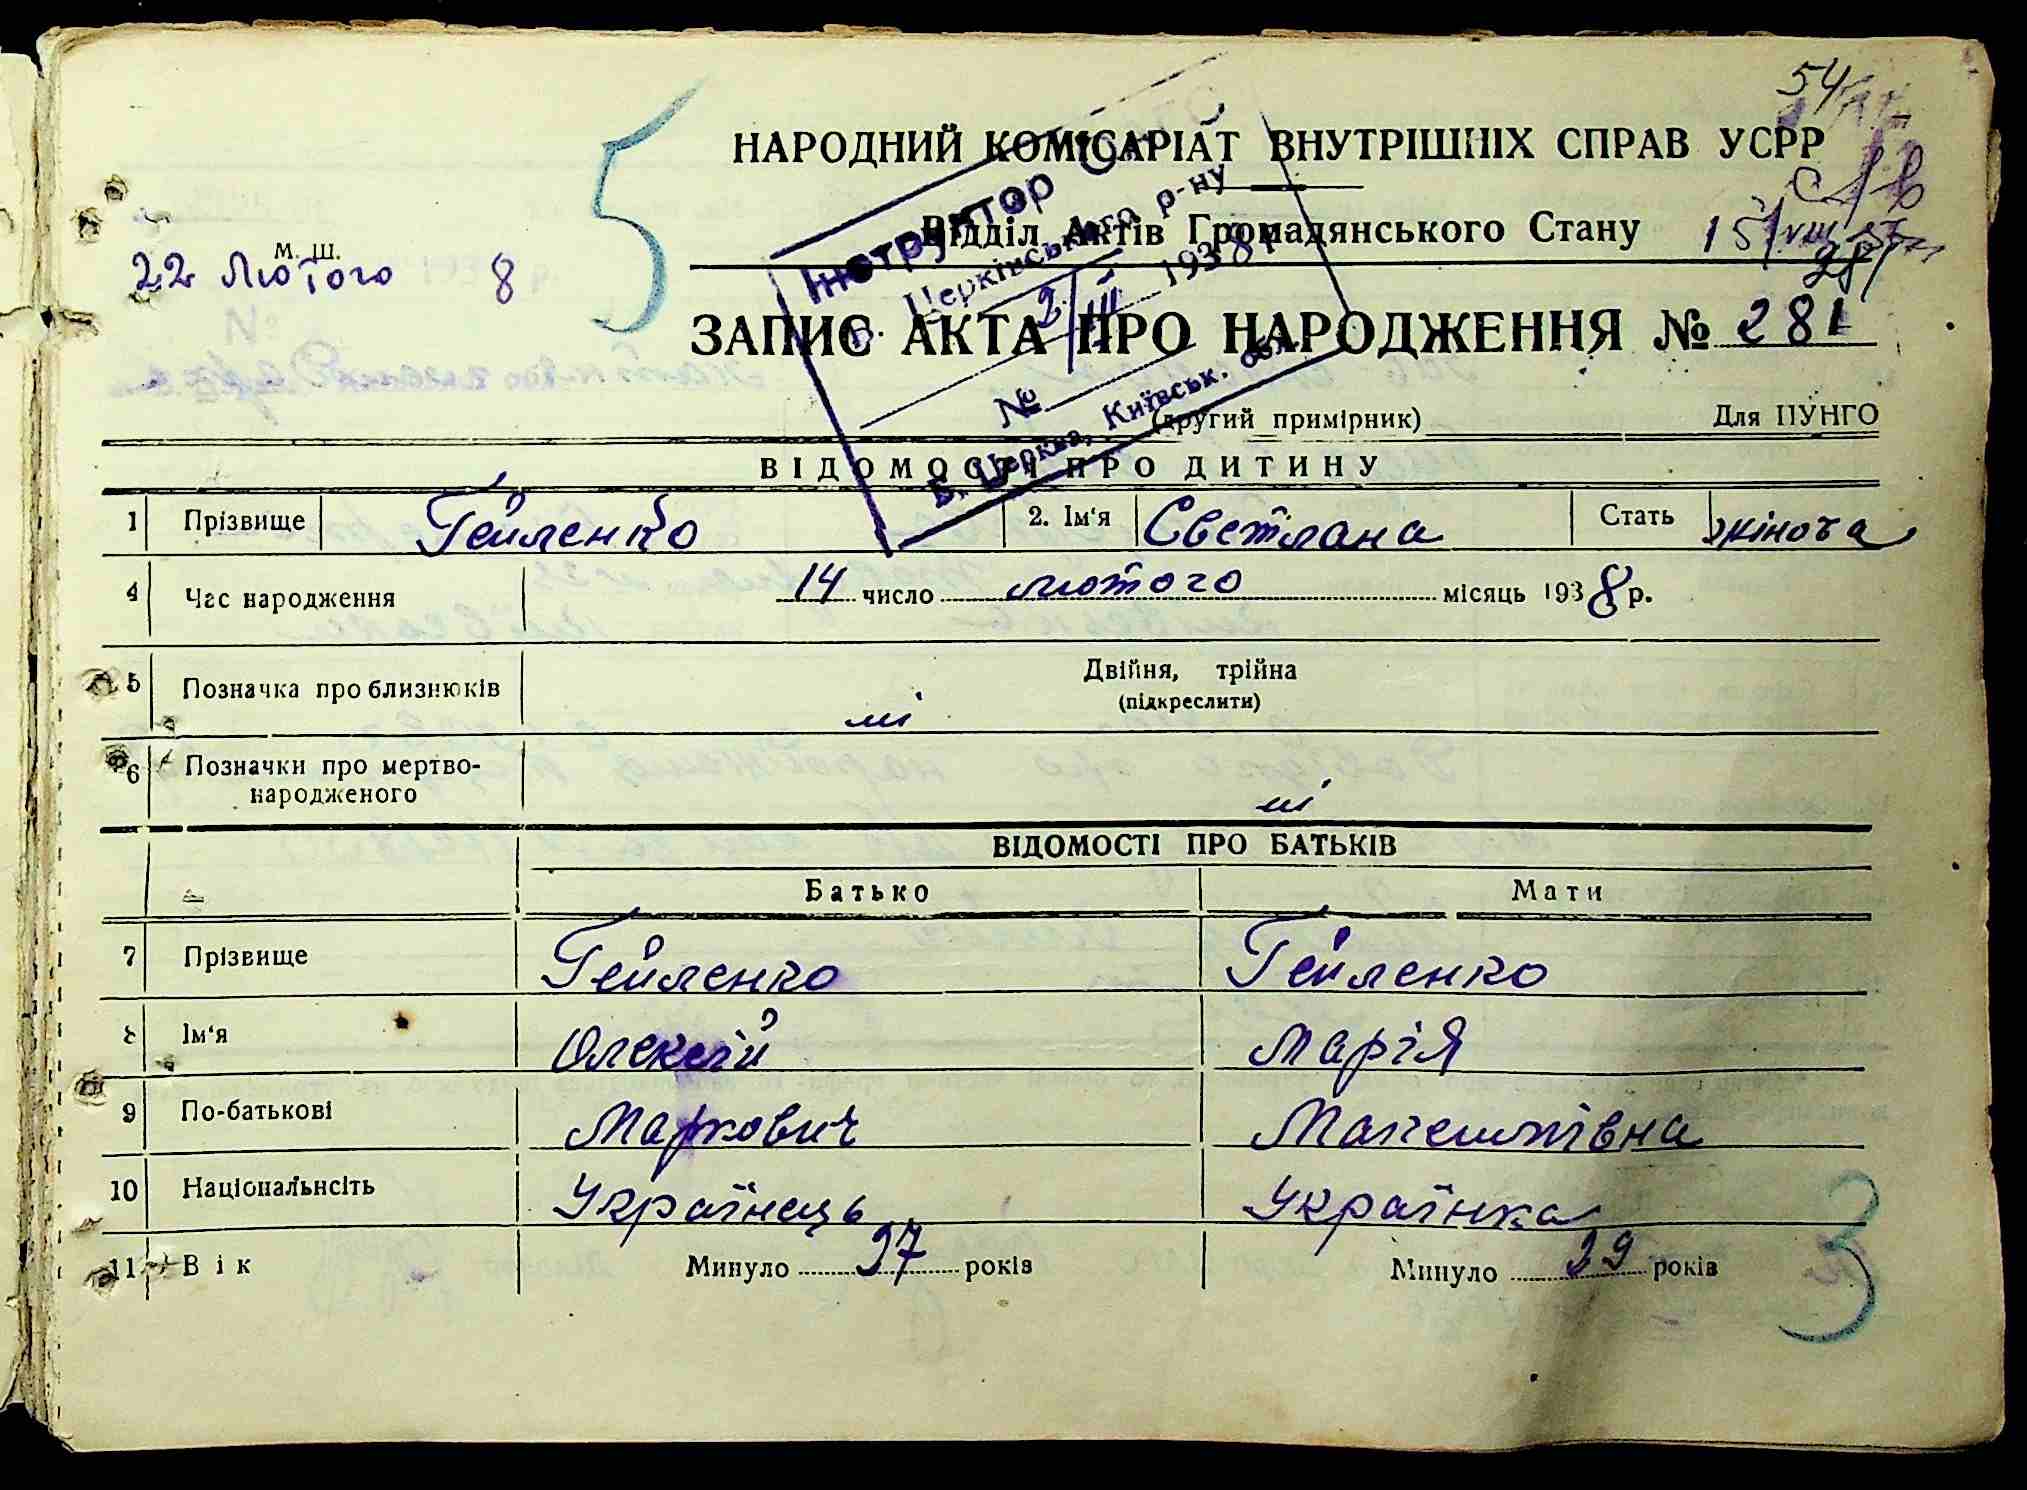 54
НАРОДНИЙ КОМІСАРІАТ ВНУТРІШНІХ СПРАВ УСРР
Відділ Актів Громадянського Стану
М. Ш.
22 Лютого 8
5
Інструктор
Б. Церківського р-ну
2/III 1938 р.
№
Б. Церква, Київськ. обл.
ЗАПИС АКТА ПРО НАРОДЖЕННЯ № 281
(другий примірник) Для ЦУНГО
ВІДОМОСТІ ПРО ДИТИНУ
1 Прізвище Гейленко 2. Ім'я Светлана Стать жіноча
4 Час народження 14 число лютого місяць 1938 р.
5 Позначка про близнюків Двійня, трійна
(підкреслити)
ні
6 Позначки про мертво-
народженого ні
ВІДОМОСТІ ПРО БАТЬКІВ
Батько Мати
7 Прізвище Гейленко Гейленко
8 Ім'я Олексій Марія
9 По-батькові Маркович
10 Національнсіть Українець Українка
11 Вік Минуло 37 років Минуло 29 років
3